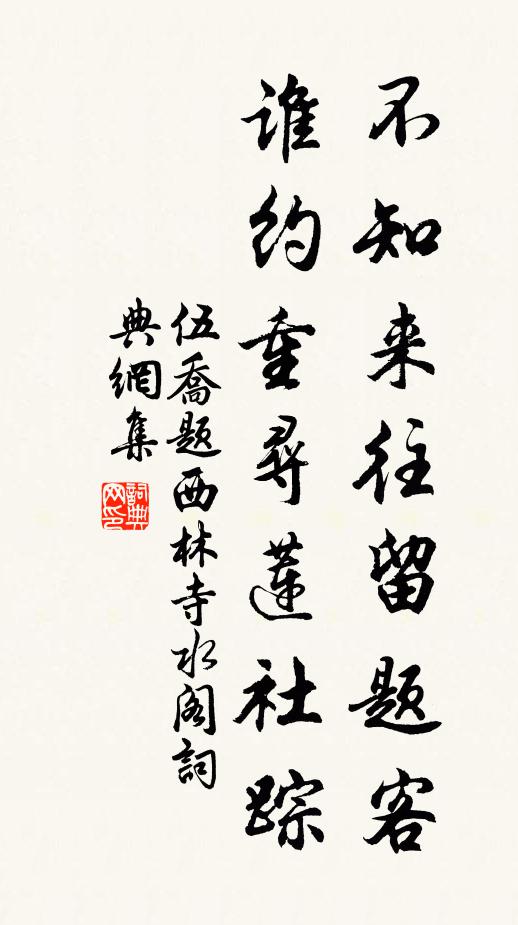 不知来往留题客
谁约重寻莲社踪
伍喬题西林寺水阁詞
典網集
詞典网印